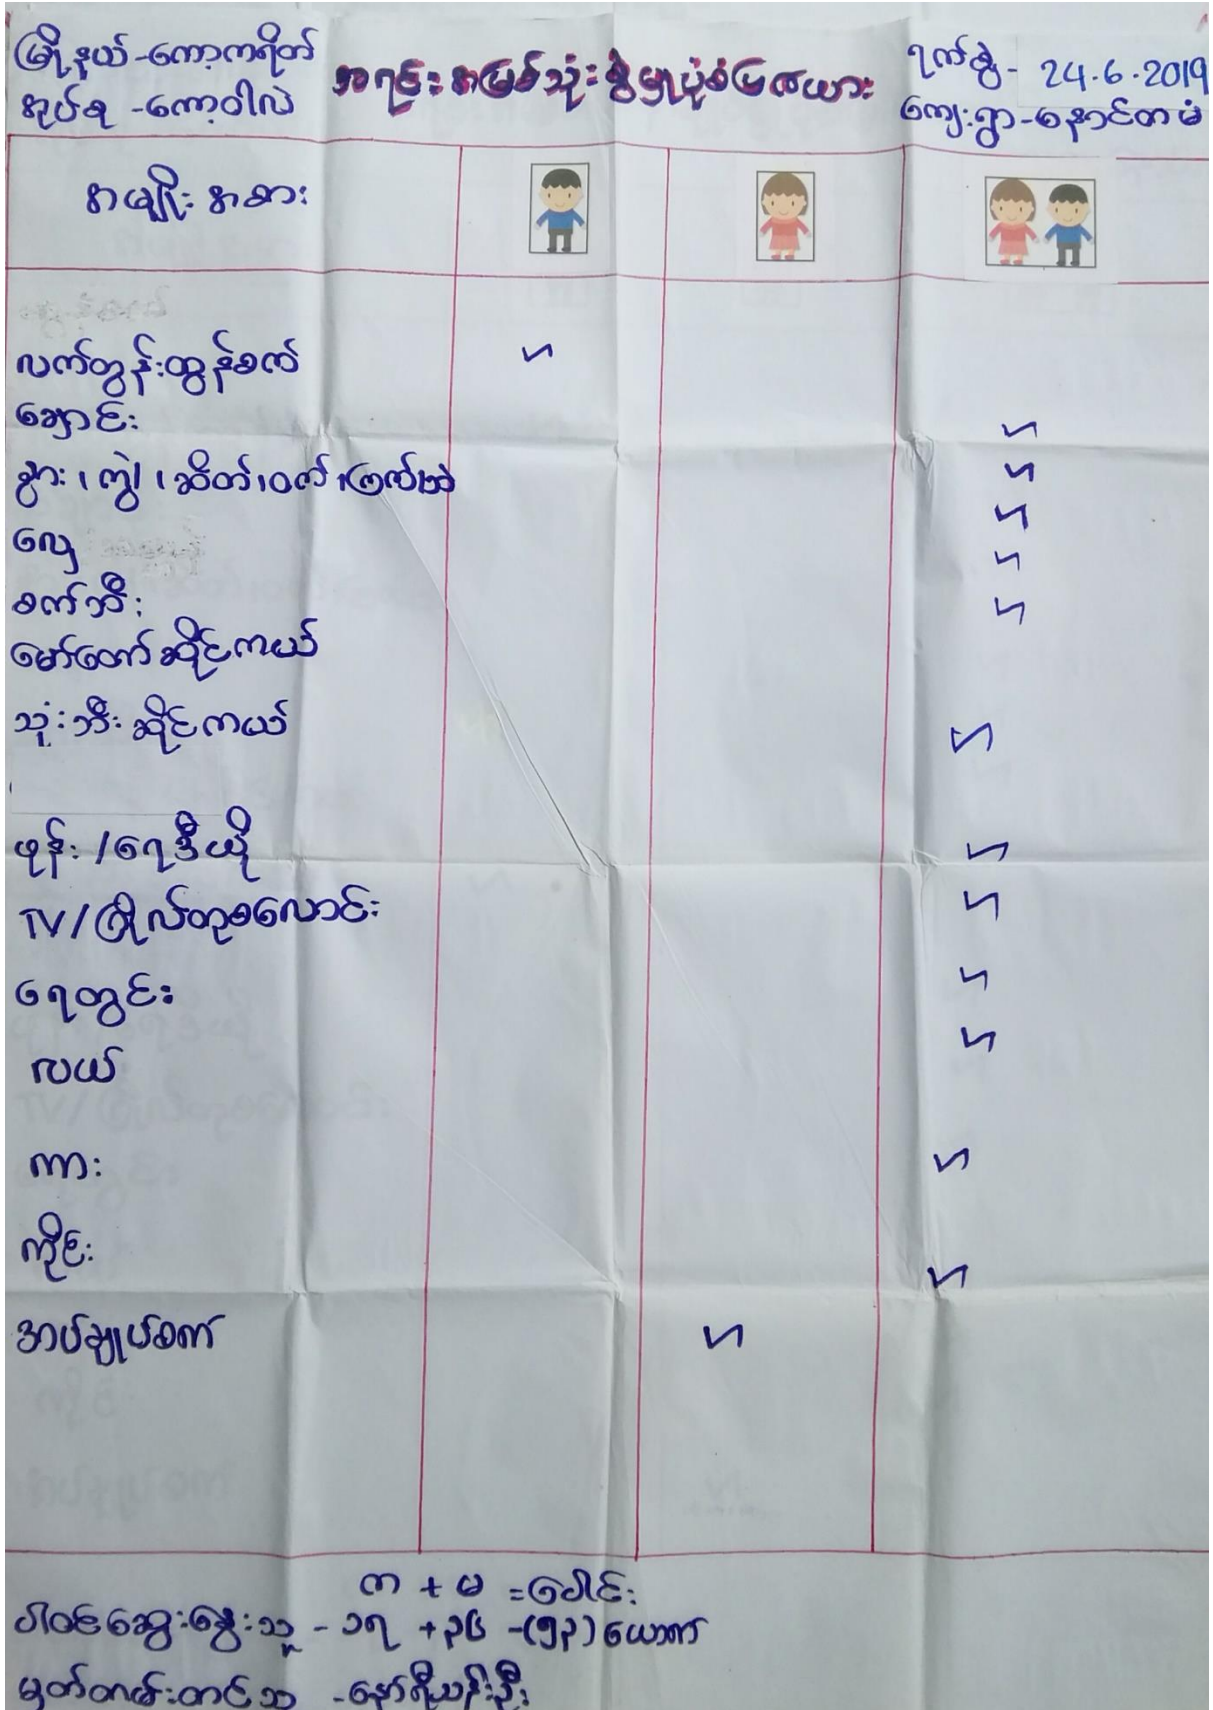 မြို့နယ် - ကော့ကရိတ်
အုပ်စု - ကော့ဝါလဲ
အရင်းအမြစ်သုံးစွဲမှုပုံစံပြဇယား
ရက်စွဲ - 24.6.2019
ကျေးရွာ - နောင်တမံ
အမျိုးအစား
လက်တွန်းထွန်စက်
ချောင်း
နွား၊ ကျွဲ၊ ဆိတ်၊ ဝက်၊ ကြက်၊ ဘဲ
လှေ
စက်ဘီး
မော်တော်ဆိုင်ကယ်
သုံးဘီးဆိုင်ကယ်
ဖုန်း / ရေဒီယို
TV / ဂြိုလ်တုစလောင်း
ရေတွင်း
လယ်
ကား
ကိုင်း
အပ်ချုပ်စက်
က + မ = ပေါင်း
ပါဝင်ဆွေးနွေးသူ - ၁၇ + ၃၆ - (၅၃) ယောက်
မှတ်တမ်းတင်သူ - နော်ရီယဉ်ဦး